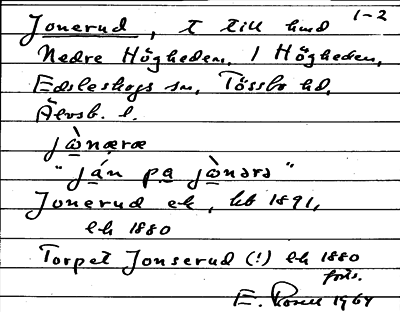 1-2
Jonerud, t till hmd
Nedre Högheden, 1 Högheden,
Edsleskogs sn, Tössbo hd,
Älvsb. l.
jὼnærœ
"ján pa jὼnərə"
Jonerud ek, hb 1891,
ek 1880
Torpet Jonserud (!) ek 1880
forts.
E. Rosell 1964